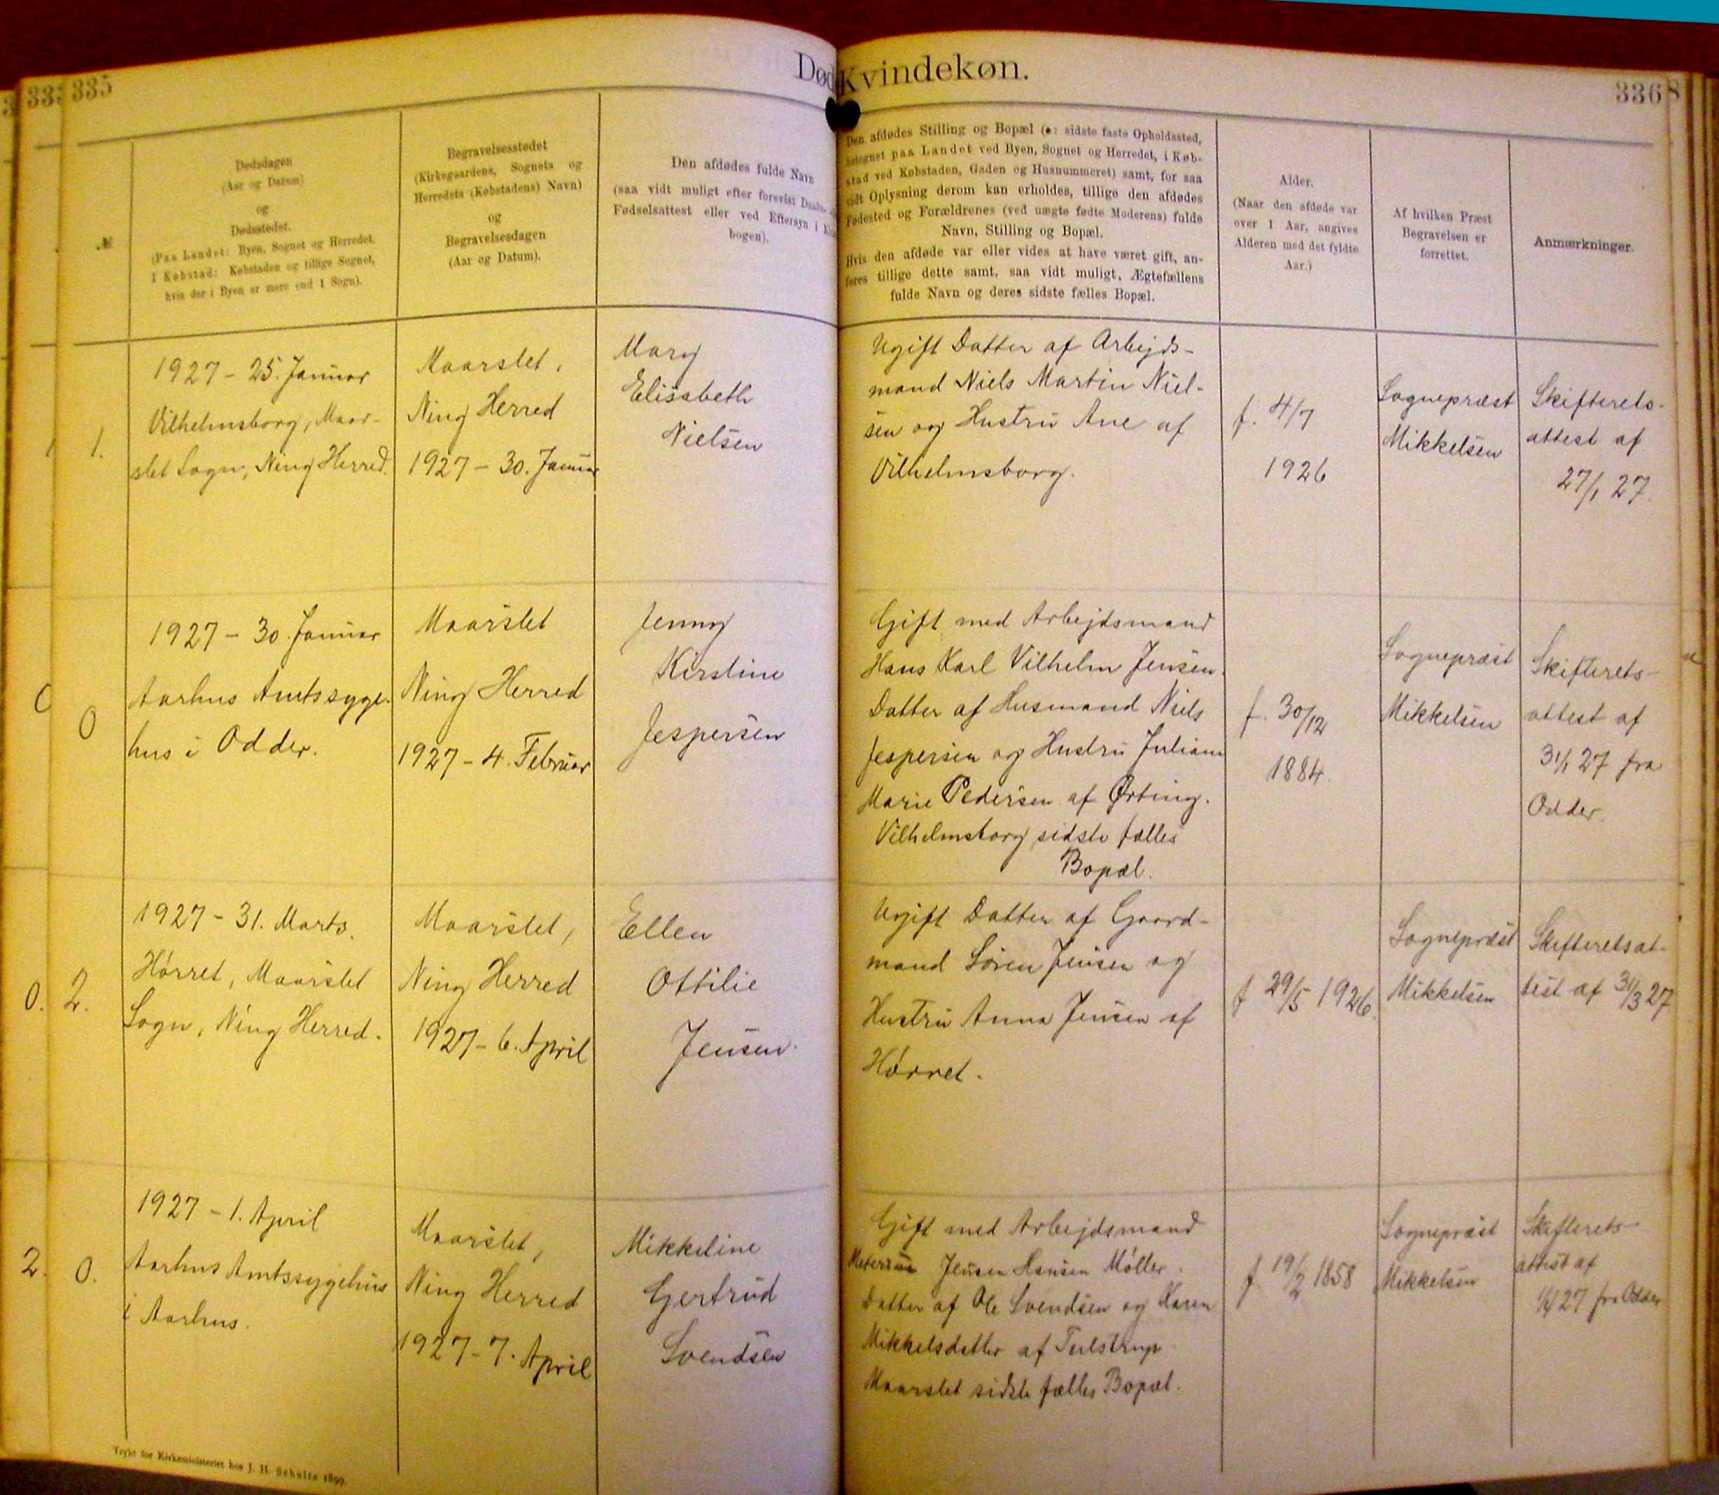 333
335
Død
Kvindekøn.
336
8
№
Dødsdagen
(Aar og Datum)
og
Dødsstedet.
(Paa Landet: Byen, Sognet og Herredet,
i Købstad: Købstaden og tillige Sognet,
hvis der i Byen er mere end 1 Sogn).
Begravelsesstedet
(Kirkegaardens, Sognets og
Herredets (Købstadens) Navn)
og
Begravelsesdagen
(Aar og Datum).
Den afdødes fulde Navn
(saa vidt muligt efter forevist
Fødselsattest eller ved Eftersyn i
bogen).
Den afdødes Stilling og Bopæl (ɔ: sidste faste Opholdssted,
betegnet paa Landet ved Byen, Sognet og Herredet, i Køb-
stad ved Købstaden, Gaden og Husnummeret) samt, for saa
vidt Oplysning derom kan erholdes, tillige den afdødes
Fødested og Forældrenes (ved uægte fødte Moderens) fulde
Navn, Stilling og Bopæl.
Hvis den afdøde var eller vides at have været gift, an-
føres tillige dette samt, saa vidt muligt, Ægtefællens
fulde Navn og deres sidste fælles Bopæl.
Alder.
(Naar den afdøde var
over 1 Aar, angives
Alderen med det fyldte
Aar.)
Af hvilken Præst
Begravelsen er
forrettet.
Anmærkninger.
1.
1927 - 25. Januar
Vilhelmsborg, Maar-
slet Sogn, Ning Herred.
Maarslet,
Ning Herred
1927 - 30. Januar
Mary
Elisabeth
Nielsen
Ugift Datter af Arbejds-
mand Niels Martin Niel-
sen og Hustru Ane af
Vilhelmsborg.
f. 4/7
1926
Sognepræst
Mikkelsen
Skifterets-
attest af
27/1 27.
0
1927 - 30. Januar
Aarhus Amtssyge-
hus i Odder.
Maarslet
Ning Herred
1927 - 4. Februar
Jenny
Kirstine
Jespersen
Gift med Arbejdsmand
Hans Karl Vilhelm Jensen.
Datter af Husmand Niels
Jespersen og Hustru Juliane
Marie Pedersen af Ørting.
Vilhelmsborg sidste fælles
Bopæl.
f. 30/12
1884.
Sognepræst
Mikkelsen
Skifterets-
attest af
31/1 27 fra
Odder.
0. 2.
1927 - 31. Marts.
Hørret, Maarslet
Sogn, Ning Herred.
Maarslet,
Ning Herred
1927 - 6. April
Ellen
Ottilie
Jensen.
Ugift Datter af Gaard-
mand Søren Jensen og
Hustru Anna Jensen af
Hørret.
f 29/5 1926.
Sognepræst
Mikkelsen
Skifteretsat-
test af 31/3 27
2. 0.
1927 - 1. April
Aarhus Amtssygehus
i Aarhus.
Maarslet,
Ning Herred
1927 - 7. April
Mikkeline
Gertrud
Svendsen
Gift med Arbejdsmand
Jensen Hansen Møller.
Datter af Ole Svendsen og Karen
Mikkelsdatter af Tulstrup.
Maarslet sidste fælles Bopæl.
f 19/2 1858
Sognepræst
Mikkelsen
Skifterets-
attest af
27 fra Odder
Trykt for Kirkeministeriet hos J. H. Schultz 1899.